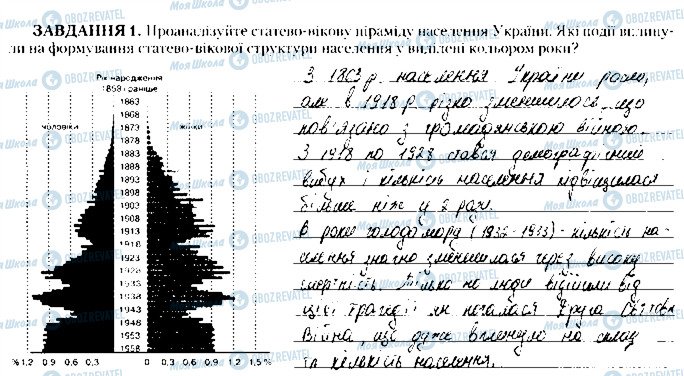 ЗАВДАННЯ 1. Проаналізуйте статево-вікову піраміду населення України. Які події вплину-
ли на формування статево-вікової структури населення у виділені кольором роки?
Рік народження
1858 і раніше
чоловіки
жінки
1863
1868
1873
1878
1883
1888
1893
1898
1903
1908
1913
1918
1923
1928
1933
1938
1943
1948
1953
1958
% 1,2 0,9 0,6 0,3 0 0,3 0,6 0,9 1,2 1,5 %
З 1863 р. населення України росло,
але в 1918 р. різко зменшилось, що
пов'язано з громадянською війною.
З 1918 по 1928 стався демографічний
вибух і кількість населення підвищилася
більше ніж у 2 рази.
В роки голодомора (1932-1933) - кількість на-
селення значно зменшилася через високу
смертність. Тілько но люди відійшли від
цієї трагедії як почалася Друга Світова
Війна, що дуже вплинуло на склад
та кількість населення.
Моя Школа
OBOZREVATEL